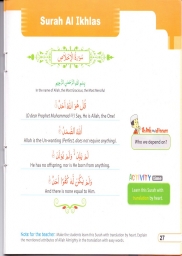 Surah Al Ikhlas
سورة الإخلاص
بسم الله الرحمن الرحيم
In the name of Allah, the Most Gracious, the Most Merciful.
قُلْ هُوَ اللَّهُ أَحَدٌ
(O dear Prophet Muhammad) Say, He is Allah, the One!
اللَّهُ الصَّمَدُ
Allah is the Un-wanting (Perfect, does not require anything).
Who are we dependent on?
لَمْ يَلِدْ وَلَمْ يُولَدْ
He has no offspring, nor is He born from anything.
وَلَمْ يَكُن لَّهُ كُفُوًا أَحَدٌ
And there is none equal to Him.
ACTIVITY time
Learn this Surah with
translation by heart.
27
Note for the teacher: Make the students learn the Surah with translation by heart. Explain
the mentioned attributes of Allah Almighty in the translation with easy words.